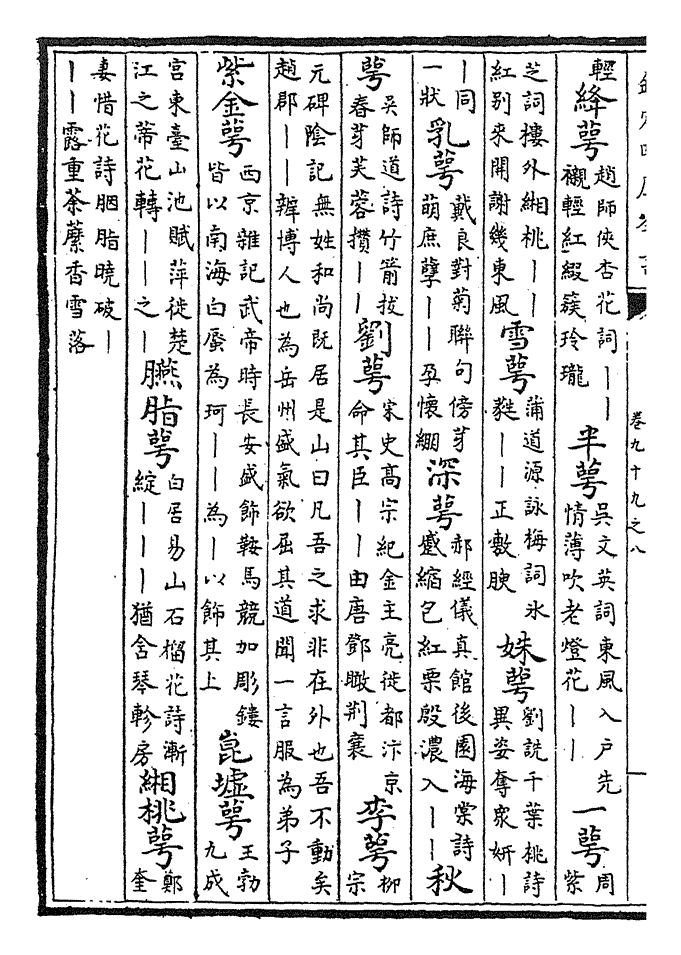 卷九十九之八
輕絳萼趙師俠杏花詞｜｜襯輕紅綴簇玲瓏半萼吳文英詞東風入戶先情薄吹老燈花｜｜一萼周紫
芝詞樓外緗桃｜｜紅别來開謝幾東風雪萼蒲道源詠梅詞氷蕤｜｜正敷腴姝萼劉詵千葉桃詩異姿奪衆妍｜
｜同一狀乳萼戴良對菊聯句傍芽萌庶孽｜｜孕懷綳深萼郝經儀真館後園海棠詩蹙縮乞紅栗殷濃入｜｜秋
萼吳師道詩竹箭拔春芽芙蓉攢｜｜劉萼宋史高宗紀金主亮徙都汴京命其臣｜｜由唐鄧瞰荆襄李萼柳宗
元碑陰記無姓和尚既居是山曰凡吾之求非在外也吾不動矣趙郡｜｜辯博人也為岳州盛氣欲屈其道聞一言服為弟子
紫金萼西京雜記武帝時長安盛飾鞍馬競加彫鏤皆以南海白蜃為珂｜｜為｜以飾其上崑墟萼王勃九成
宮東臺山池賦萍徙楚江之蒂花轉｜｜之｜臙脂萼白居易山石榴花詩漸綻｜｜｜猶含琴軫房緗桃萼鄭奎
妻惜花詩胭脂曉破｜｜｜露重荼蘼香雪落